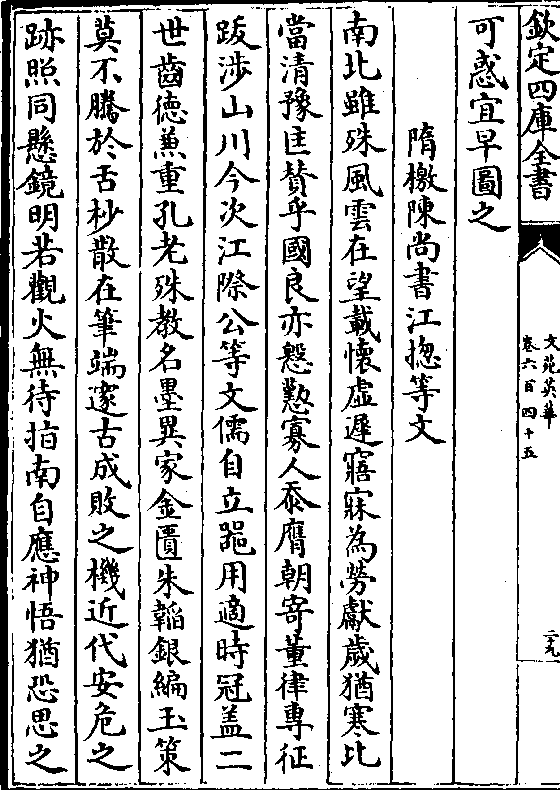 欽定四庫全書
文苑英華
卷六百四十五
二十九
可惑宜早圖之
隋檄陳尚書江揔等文
南北雖殊風雲在望載懷虛遲寤寐為勞獻歲猶寒比
當清豫匡贊乎國良亦慇懃寡人忝膺朝寄董律專征
跋涉山川今次江際公等文儒自立噐用適時冠盖二
世齒德兼重孔老殊教名墨異家金匱朱韜銀編玉策
莫不騰於舌杪散在筆端邃古成敗之機近代安危之
跡照同懸鏡明若觀火無待指南自應神悟猶恐思之